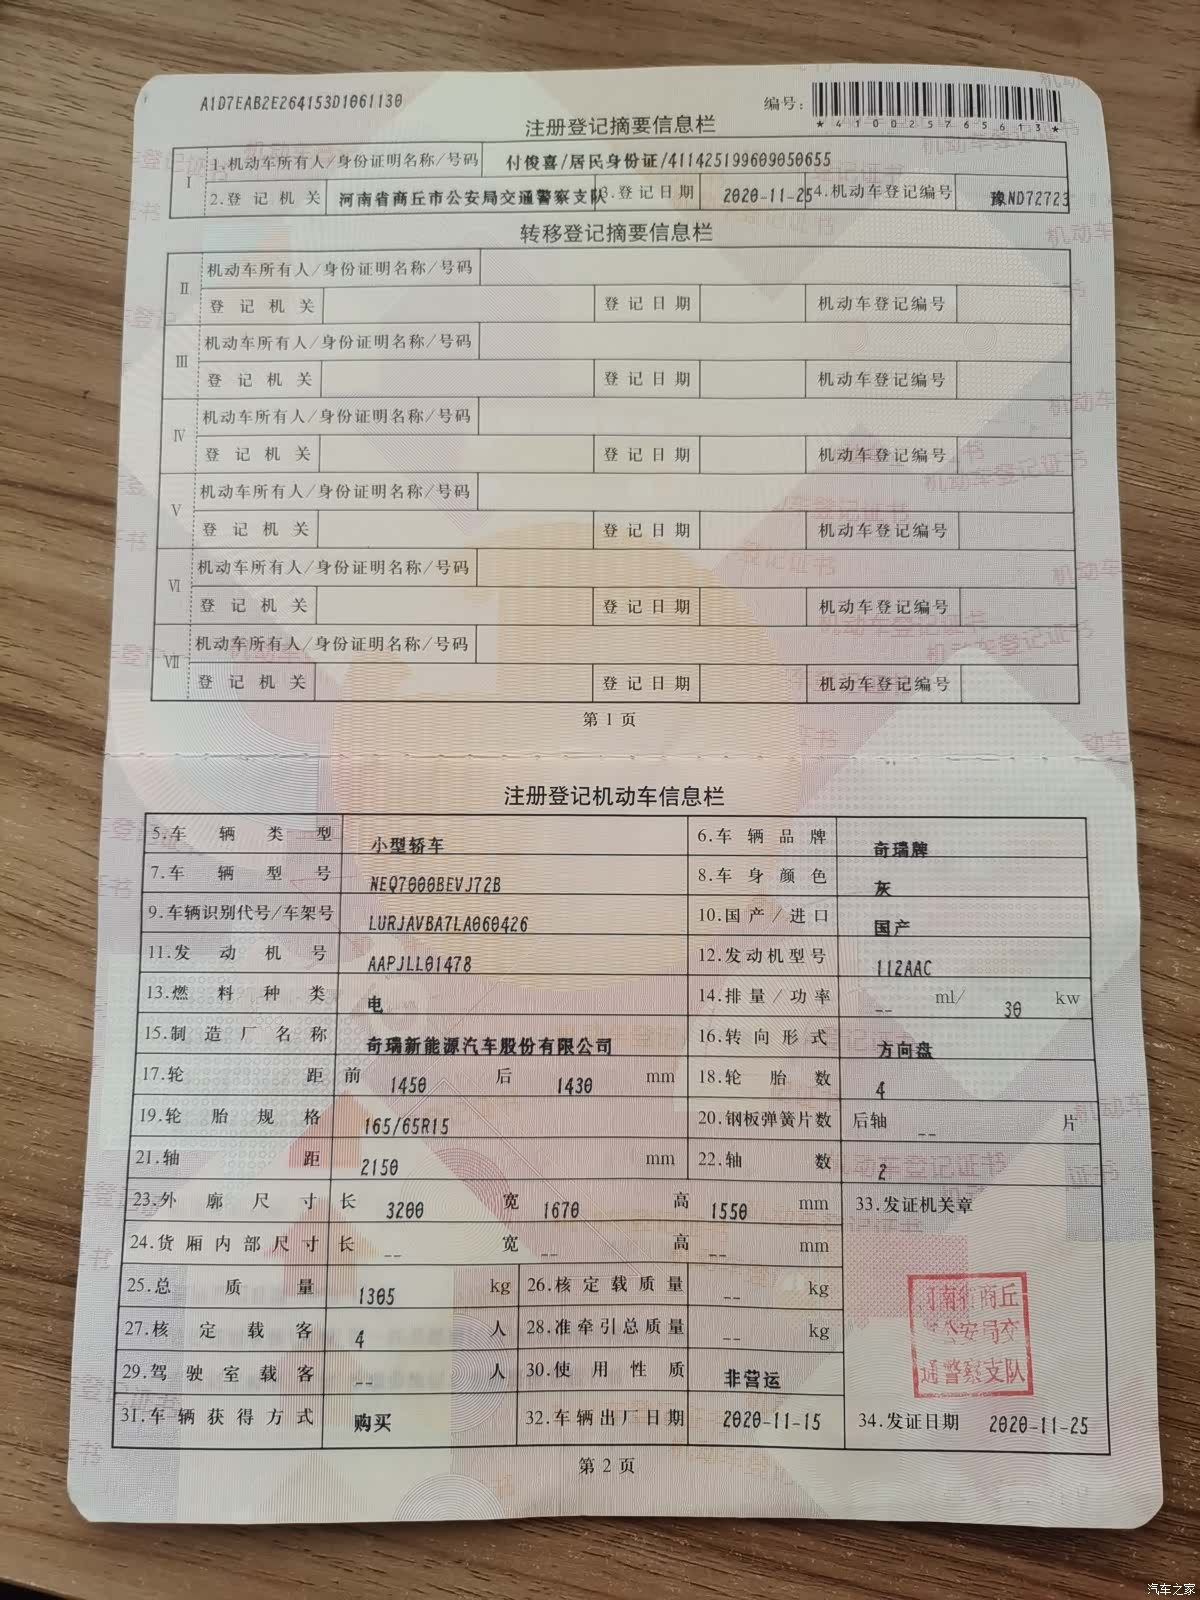 A1D7EAB2E264153D1061130
编号:
*410025765613*
注册登记摘要信息栏
I 1.机动车所有人/身份证明名称/号码 付俊喜/居民身份证/411425199609050655
2.登记机关 河南省商丘市公安局交通警察支队 3.登记日期 2020-11-25 4.机动车登记编号 豫ND72723
转移登记摘要信息栏
II 机动车所有人/身份证明名称/号码
登记机关 登记日期 机动车登记编号
III 机动车所有人/身份证明名称/号码
登记机关 登记日期 机动车登记编号
IV 机动车所有人/身份证明名称/号码
登记机关 登记日期 机动车登记编号
V 机动车所有人/身份证明名称/号码
登记机关 登记日期 机动车登记编号
VI 机动车所有人/身份证明名称/号码
登记机关 登记日期 机动车登记编号
VII 机动车所有人/身份证明名称/号码
登记机关 登记日期 机动车登记编号
第1页
注册登记机动车信息栏
5.车辆类型 小型轿车 6.车辆品牌 奇瑞牌
7.车辆型号 NEQ7000BEVJ72B 8.车身颜色 灰
9.车辆识别代号/车架号 LURJAVBA7LA060426 10.国产/进口 国产
11.发动机号 AAPJLL01478 12.发动机型号 112AAC
13.燃料种类 电 14.排量/功率 -- ml/ 30 kw
15.制造厂名称 奇瑞新能源汽车股份有限公司 16.转向形式 方向盘
17.轮距 前 1450 后 1430 mm 18.轮胎数 4
19.轮胎规格 165/65R15 20.钢板弹簧片数 后轴 -- 片
21.轴距 2150 mm 22.轴数 2
23.外廓尺寸 长 3200 宽 1670 高 1550 mm 33.发证机关章
24.货厢内部尺寸 长 -- 宽 -- 高 -- mm
25.总质量 1305 kg 26.核定载质量 -- kg
27.核定载客 4 人 28.准牵引总质量 -- kg
29.驾驶室载客 -- 人 30.使用性质 非营运
31.车辆获得方式 购买 32.车辆出厂日期 2020-11-15 34.发证日期 2020-11-25
河南省商丘
公安局交
通警察支队
第2页
汽车之家